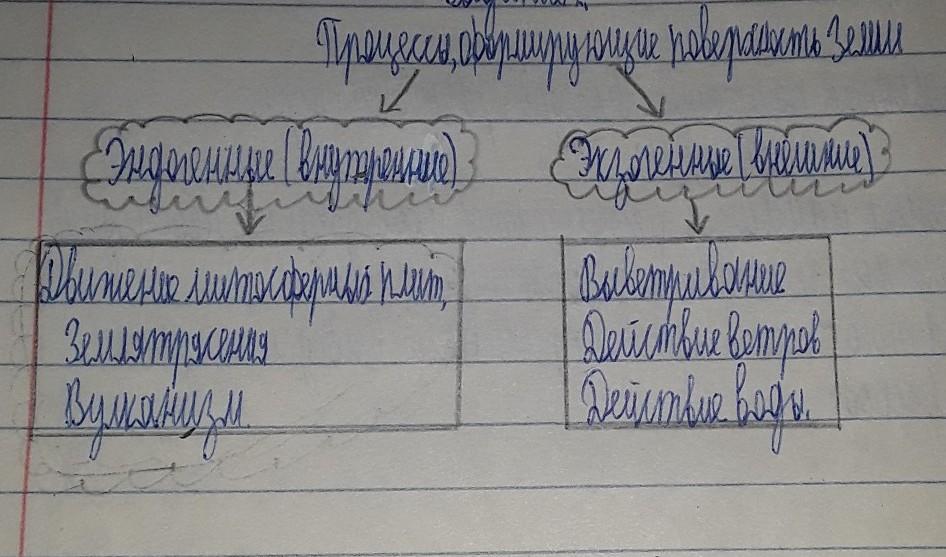 Процессы, формирующие поверхность Земли
Эндогенные (внутренние)
Экзогенные (внешние)
Движение литосферных плит,
Землятрясения
Вулканизм
Выветривание
Действие ветров
Действие воды.